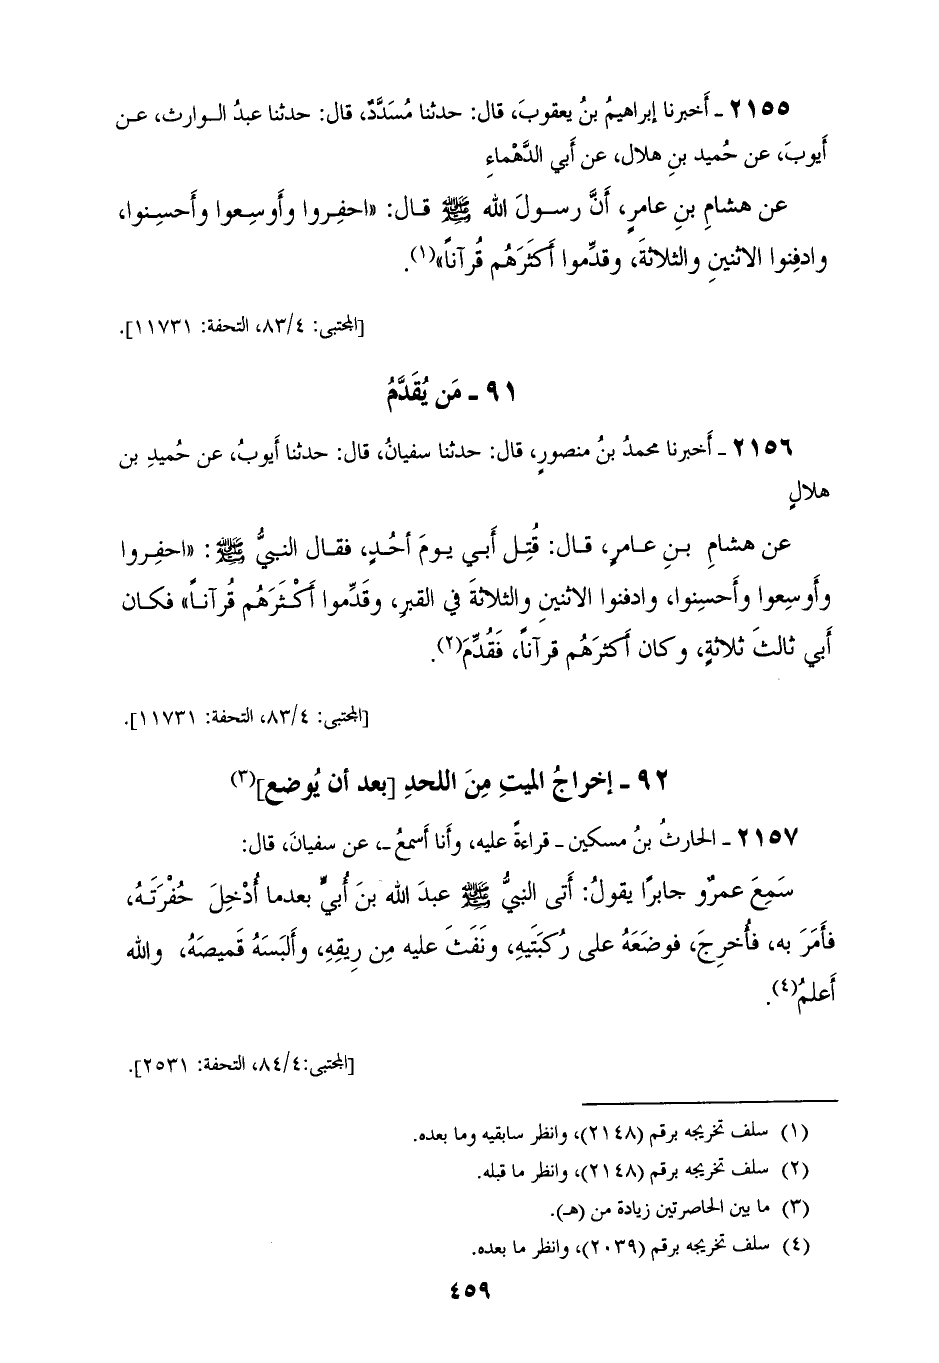 ٢١٥٥ ـ أَخبرنا إبراهيمُ بنُ يعقوبَ، قال: حدثنا مُسَدَّدٌ، قال: حدثنا عبدُ الـوارث، عـن
أَيوبَ، عن حُميد بنِ هلال، عن أَبي الدَّهْماءِ
عن هشامِ بنِ عامرٍ، أَنَّ رسـولَ الله ﷺ قـال: «احفِـروا وأَوسِـعوا وأَحسِـنوا،
وادفِنوا الاثنينِ والثلاثةَ، وقدِّموا أَكثَرَهُم قُرآناً»(١).
[المجتبى: ٨٣/٤، التحفة: ١١٧٣١].
٩١ ـ مَن يُقَدَّمُ
٢١٥٦ ـ أَخبرنا محمدُ بنُ منصورٍ، قال: حدثنا سفيانُ، قال: حدثنا أَيوبُ، عن حُميدِ بن
هلالٍ
عن هشامِ بـنِ عـامرٍ، قـال: قُتِـل أَبـي يـومَ أُحُـدٍ، فقـال النبـيُّ ﷺ: «احفِـروا
وأَوسِعوا وأَحسِنوا، وادفنوا الاثنينِ والثلاثةَ في القبرِ، وقَدِّموا أَكْـثَرَهُم قُرآنـاً» فكـان
أَبي ثالثَ ثلاثةٍ، وكان أَكثرَهُم قرآناً، فَقُدِّمَ(٢).
[المجتبى: ٨٣/٤، التحفة: ١١٧٣١].
٩٢ ـ إخراجُ الميتِ مِنَ اللحدِ [بعد أن يُوضع](٣)
٢١٥٧ ـ الحارثُ بنُ مسكين ـ قراءةً عليه، وأَنا أَسمعُ ـ، عن سفيانَ، قال:
سَمِعَ عمرٌو جابرًا يقولُ: أَتى النبيُّ ﷺ عبدَ الله بنَ أُبيٍّ بعدما أُدْخِلَ حُفْرَتَـهُ،
فأَمَرَ به، فأُخرِجَ، فوضَعَهُ على رُكبَتَيهِ، ونَفَثَ عليه مِن رِيقِهِ، وأَلبَسَهُ قَميصَهُ، والله
أَعلمُ(٤).
[المجتبى:٨٤/٤، التحفة: ٢٥٣١].
(١) سلف تخريجه برقم (٢١٤٨)، وانظر سابقيه وما بعده.
(٢) سلف تخريجه برقم (٢١٤٨)، وانظر ما قبله.
(٣) ما بين الحاصرتين زيادة من (هـ).
(٤) سلف تخريجه برقم (٢٠٣٩)، وانظر ما بعده.
٤٥٩